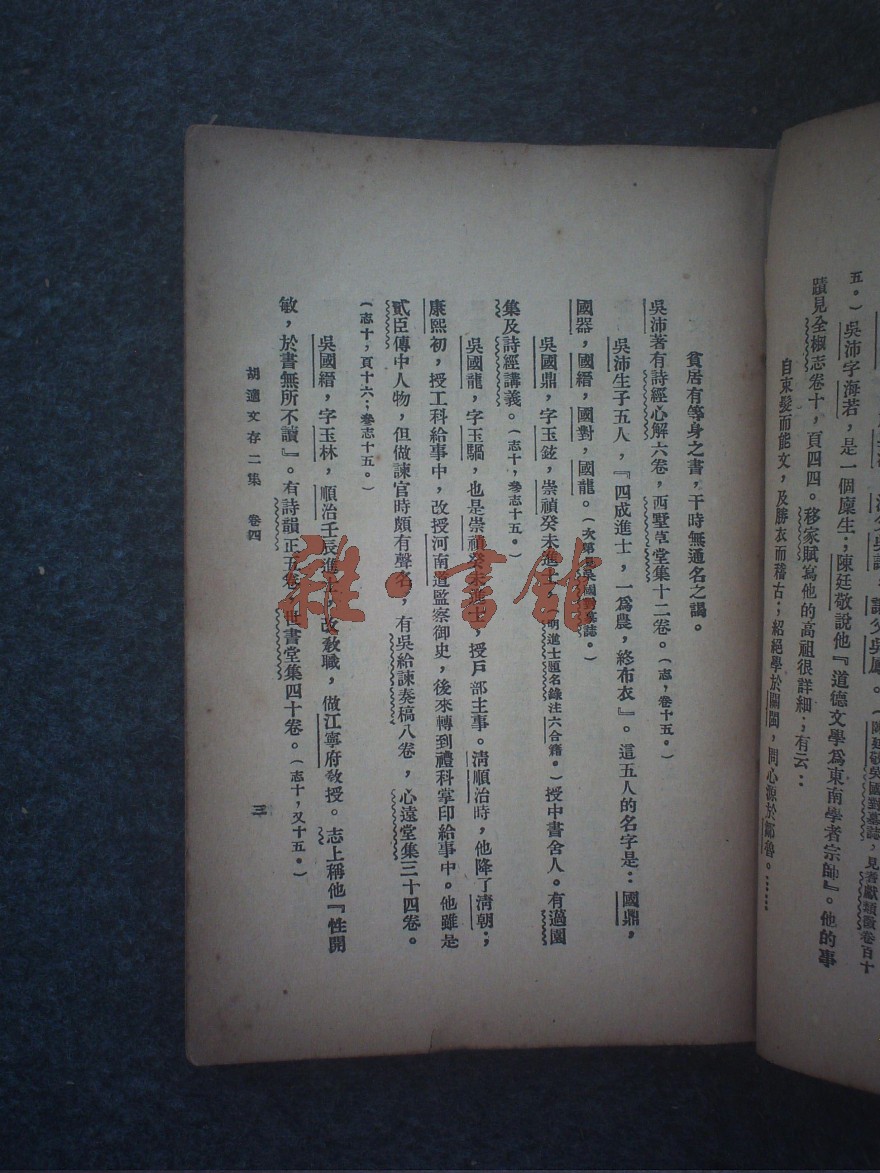 五。）吳沛字海若，是一個廩生；陳廷敬說他『道德文學爲東南學者宗師』。他的事
蹟見全椒志卷十，頁四四。移家賦寫他的高祖很詳細；有云：
自束髮而能文，及勝衣而稽古；紹絕學於關閩，問心源於鄒魯。……
貧居有等身之書，干時無通名之謁。
吳沛著有詩經心解六卷，西墅草堂集十二卷。（志，卷十五。）
吳沛生子五人，『四成進士，一爲農，終布衣』。這五人的名字是：國鼎，
國器，國縉，國對，國龍。（次第見吳國對墓誌。）
吳國鼎，字玉鉉，崇禎癸未進士，明進士題名錄注六合籍。）授中書舍人。有邁園
集及詩經講義。（志十，參志十五。）
吳國龍，字玉騧，也是崇禎癸未進士，授戶部主事。清順治時，他降了清朝；
康熙初，授工科給事中，改授河南道監察御史，後來轉到禮科掌印給事中。他雖是
貳臣傳中人物，但做諫官時頗有聲名，有吳給諫奏稿八卷，心遠堂集三十四卷。
（志十，頁十六；參志十五。）
吳國縉，字玉林，順治壬辰進士，改敎職，做江寧府敎授。志上稱他『性開
敏，於書無所不讀』。有詩韻正五卷，世書堂集四十卷。（志十，又十五。）
胡適文存二集 卷四
三
雜·書館